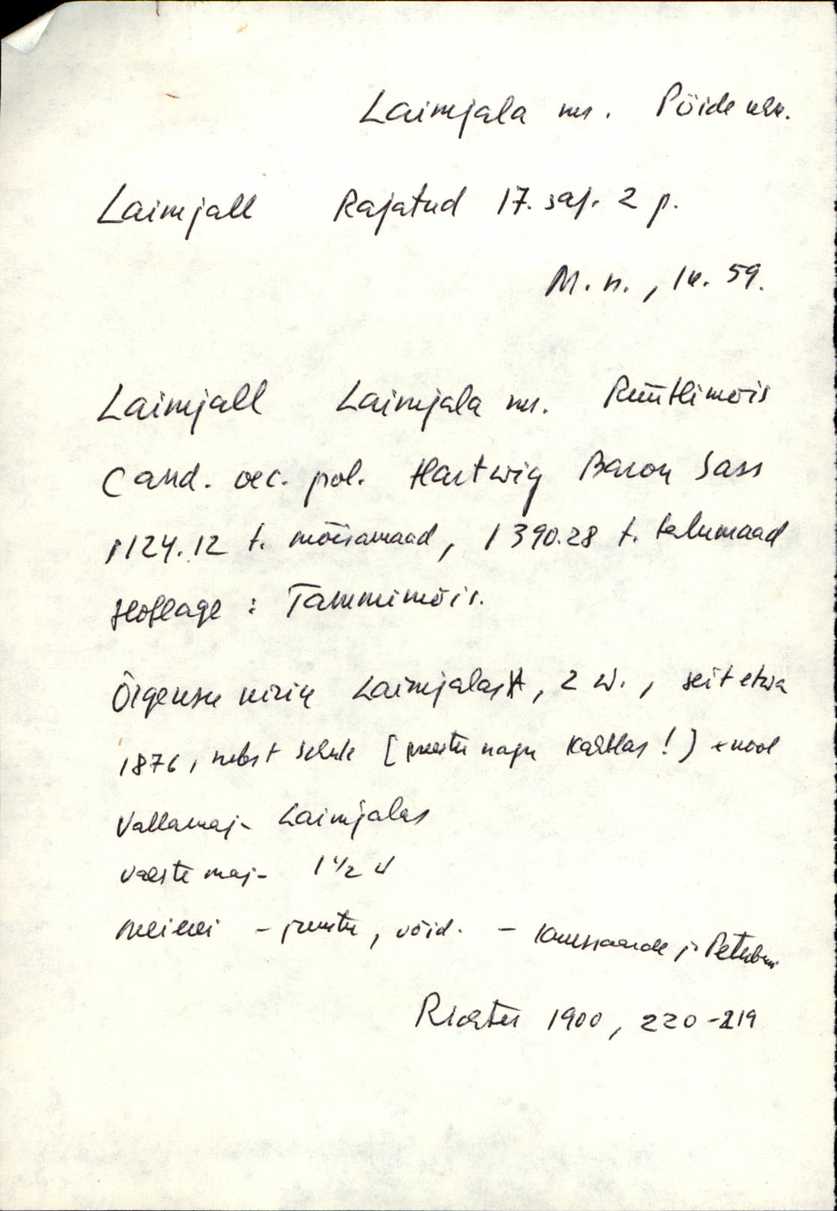 Laimjala ms. Pöide khk.
Laimjall Rajatud 17. saj. 2 p.
M. n., lk. 59.
Laimjall Laimjala ms. Rüütlimõis
Cand. oec. pol. Hartwig Baron Sass
1124.12 t. mõisamaad, 1390.28 t. talumaad
Hoflage: Tammimõis.
Õigeusu kirik Laimjalast, 2 w., seit etwa
1876, nebst Schule [ nagu !) + kool
Vallamaj- Laimjalas
vaeste maj- 1 1/2 w
Meierei - juustu, võid. - Kuressaarde j- Peterburi
Richter 1900, 220-219